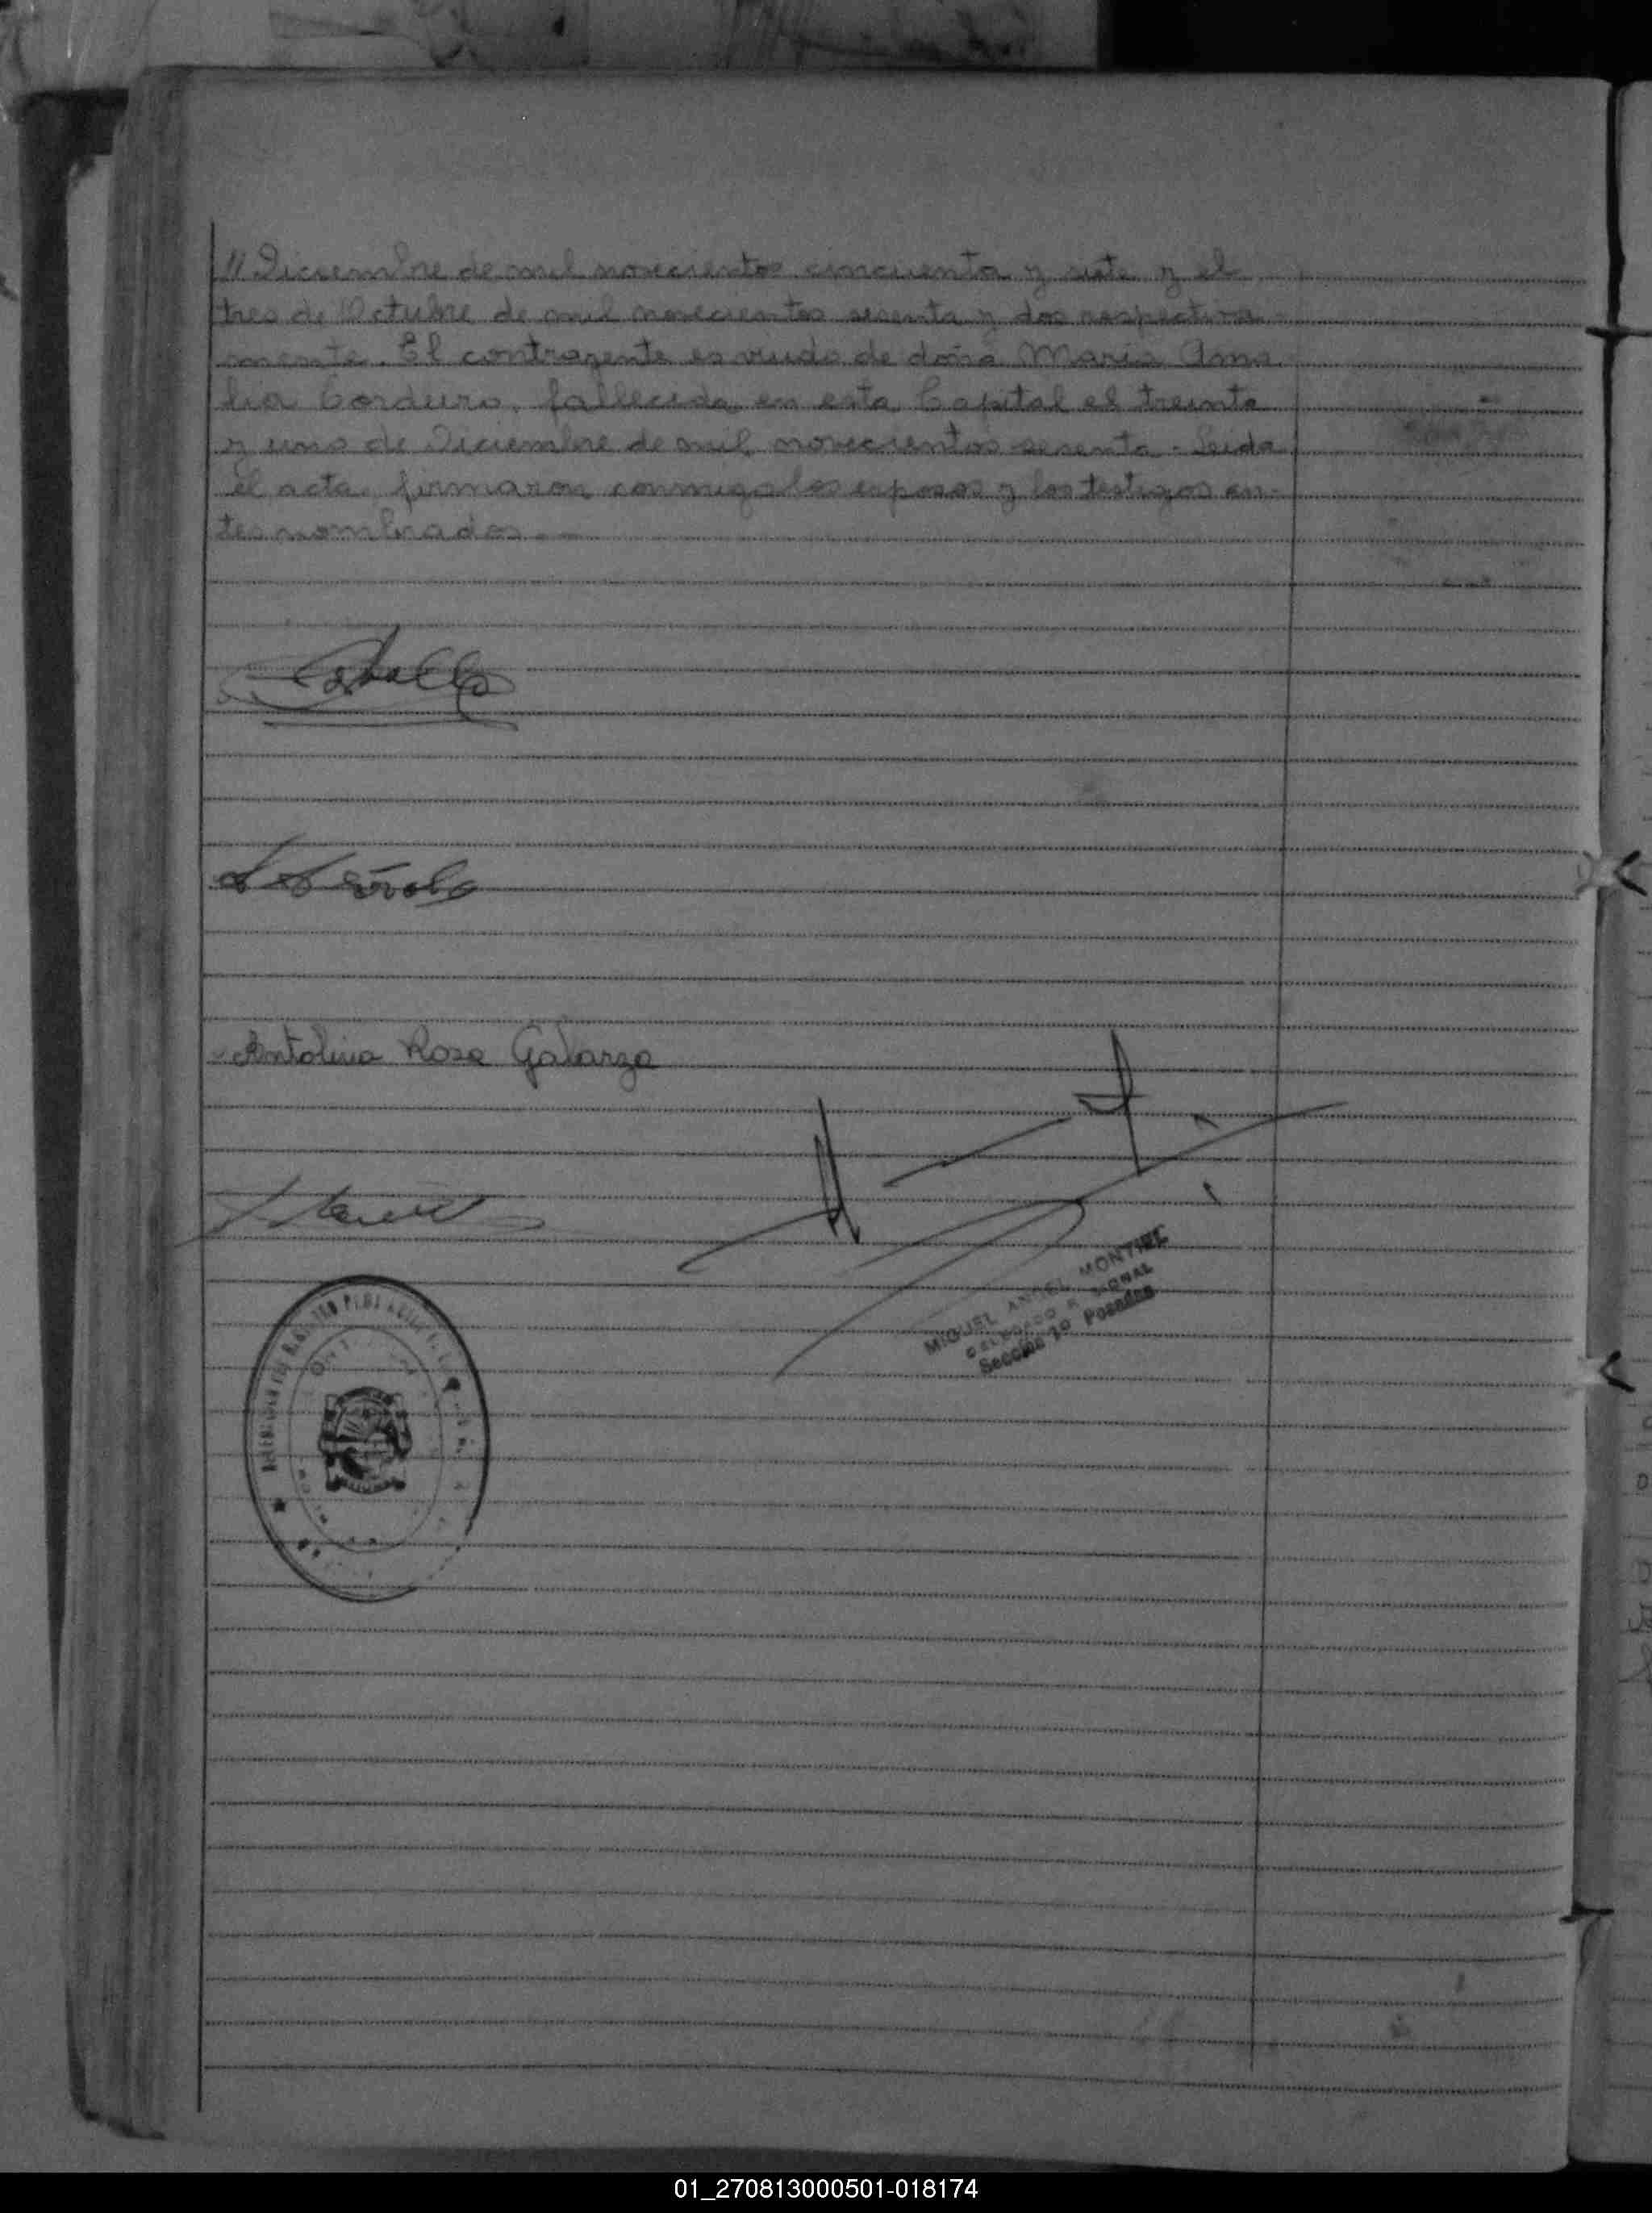 " Diciembre de mil novecientos cincuenta y siete y el
tres de Octubre de mil novecientos sesenta y dos respectiva-
mente. El contrayente es viudo de doña Maria Ama-
lia Corduro, fallecida en esta Capital el treinta
y uno de Diciembre de mil novecientos sesenta. - Leida
el acta, firmaron conmigo los esposos y los testigos an-
tes nombrados. - -
Antolina Rosa Galarza
MIGUEL ANGEL MONTIEL
DELEGADO
Sección 1º Posadas
01_270813000501-018174